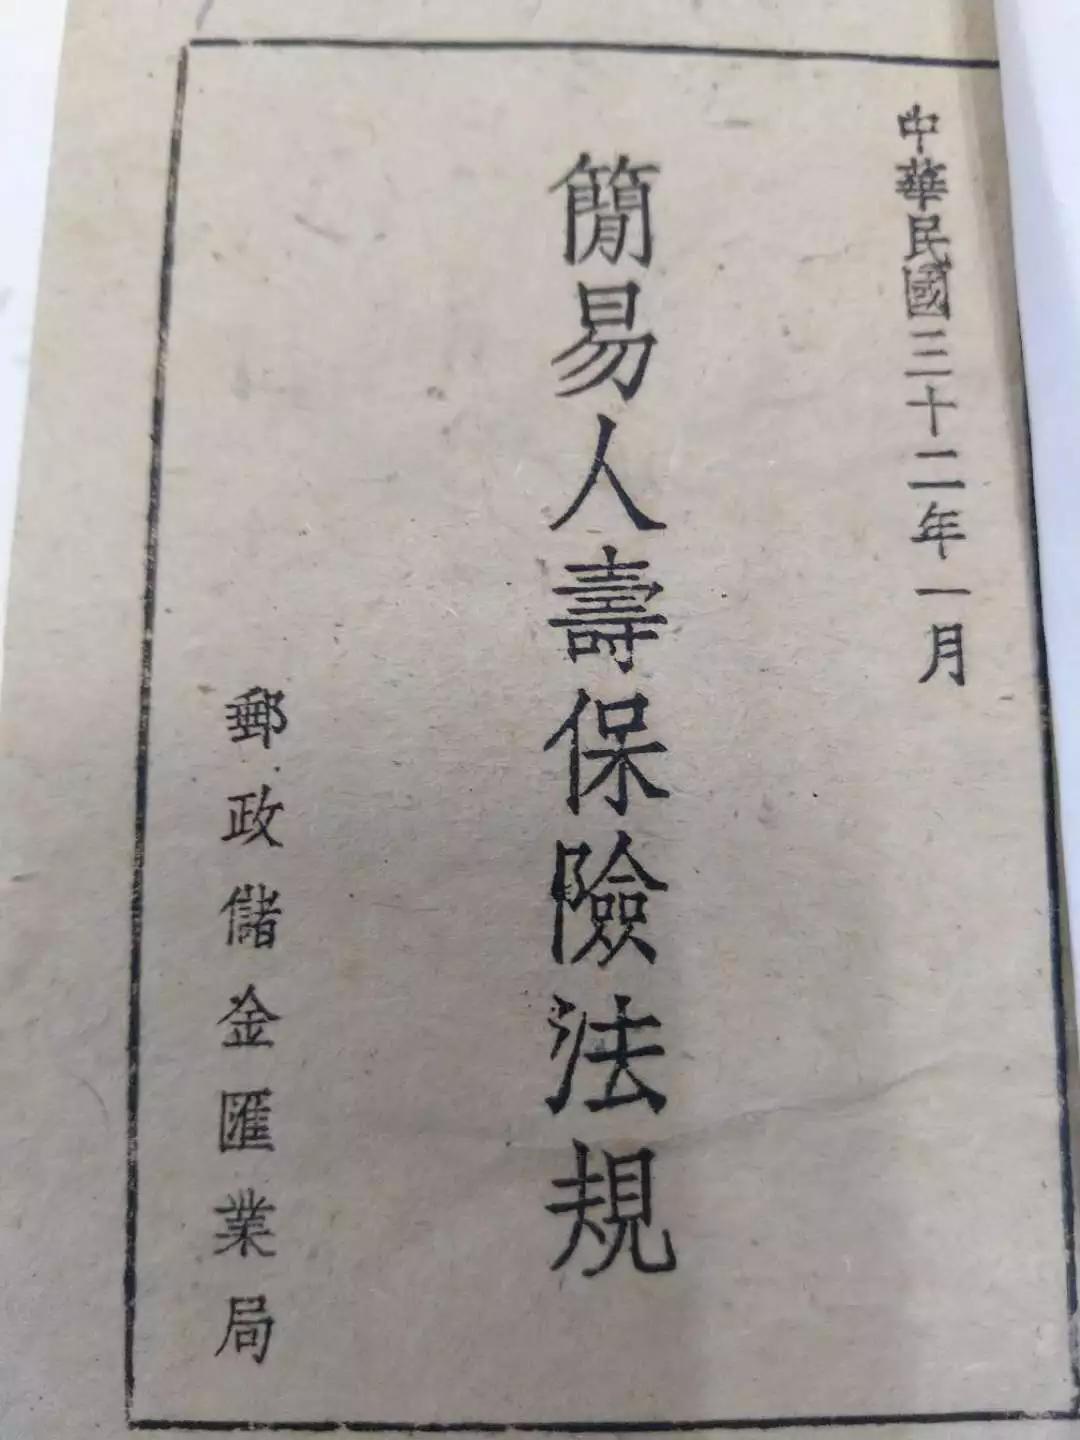 中華民國三十二年一月
簡易人壽保險法規
郵政儲金匯業局